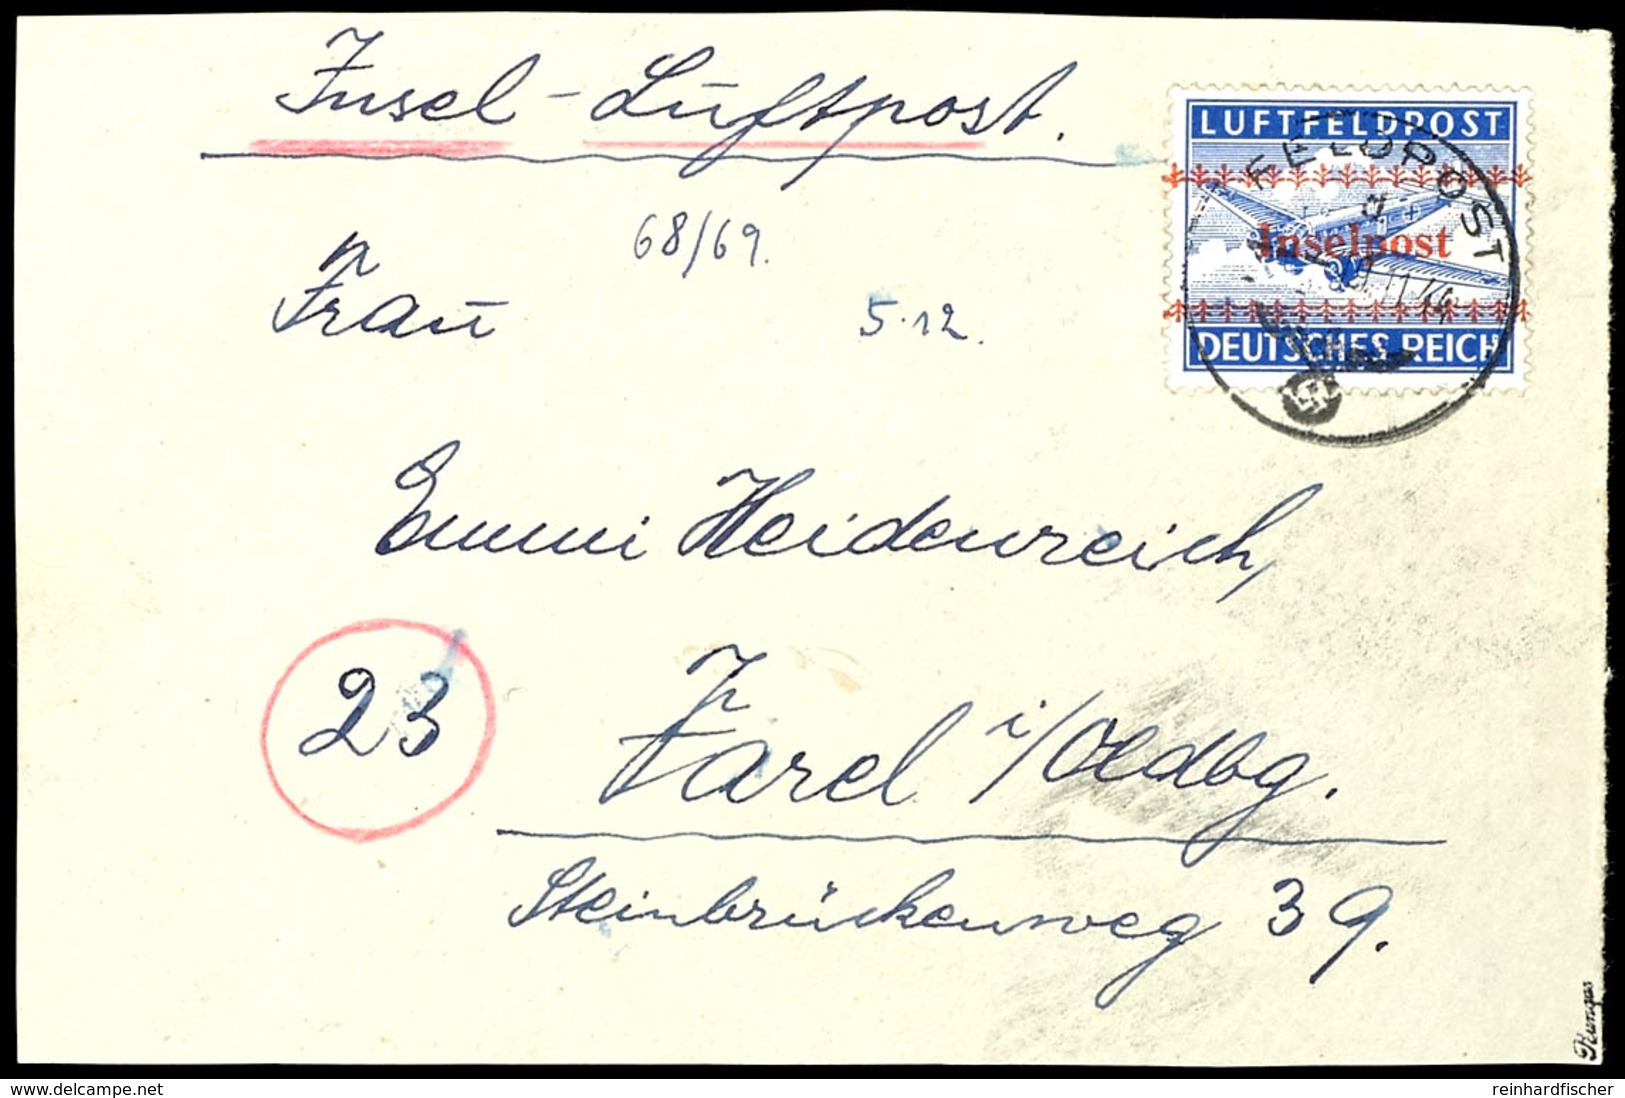 Insel-Luftpost.
LUFTFELDPOST
FELDPOST
d
Inselpost
11.44
DEUTSCHES REICH
68/69.
Frau
5.12.
Emmi Heidenreich,
23
Varel i/Oldbg.
Steinbrückenweg 39.
www.delcampe.net
reinhardfischer